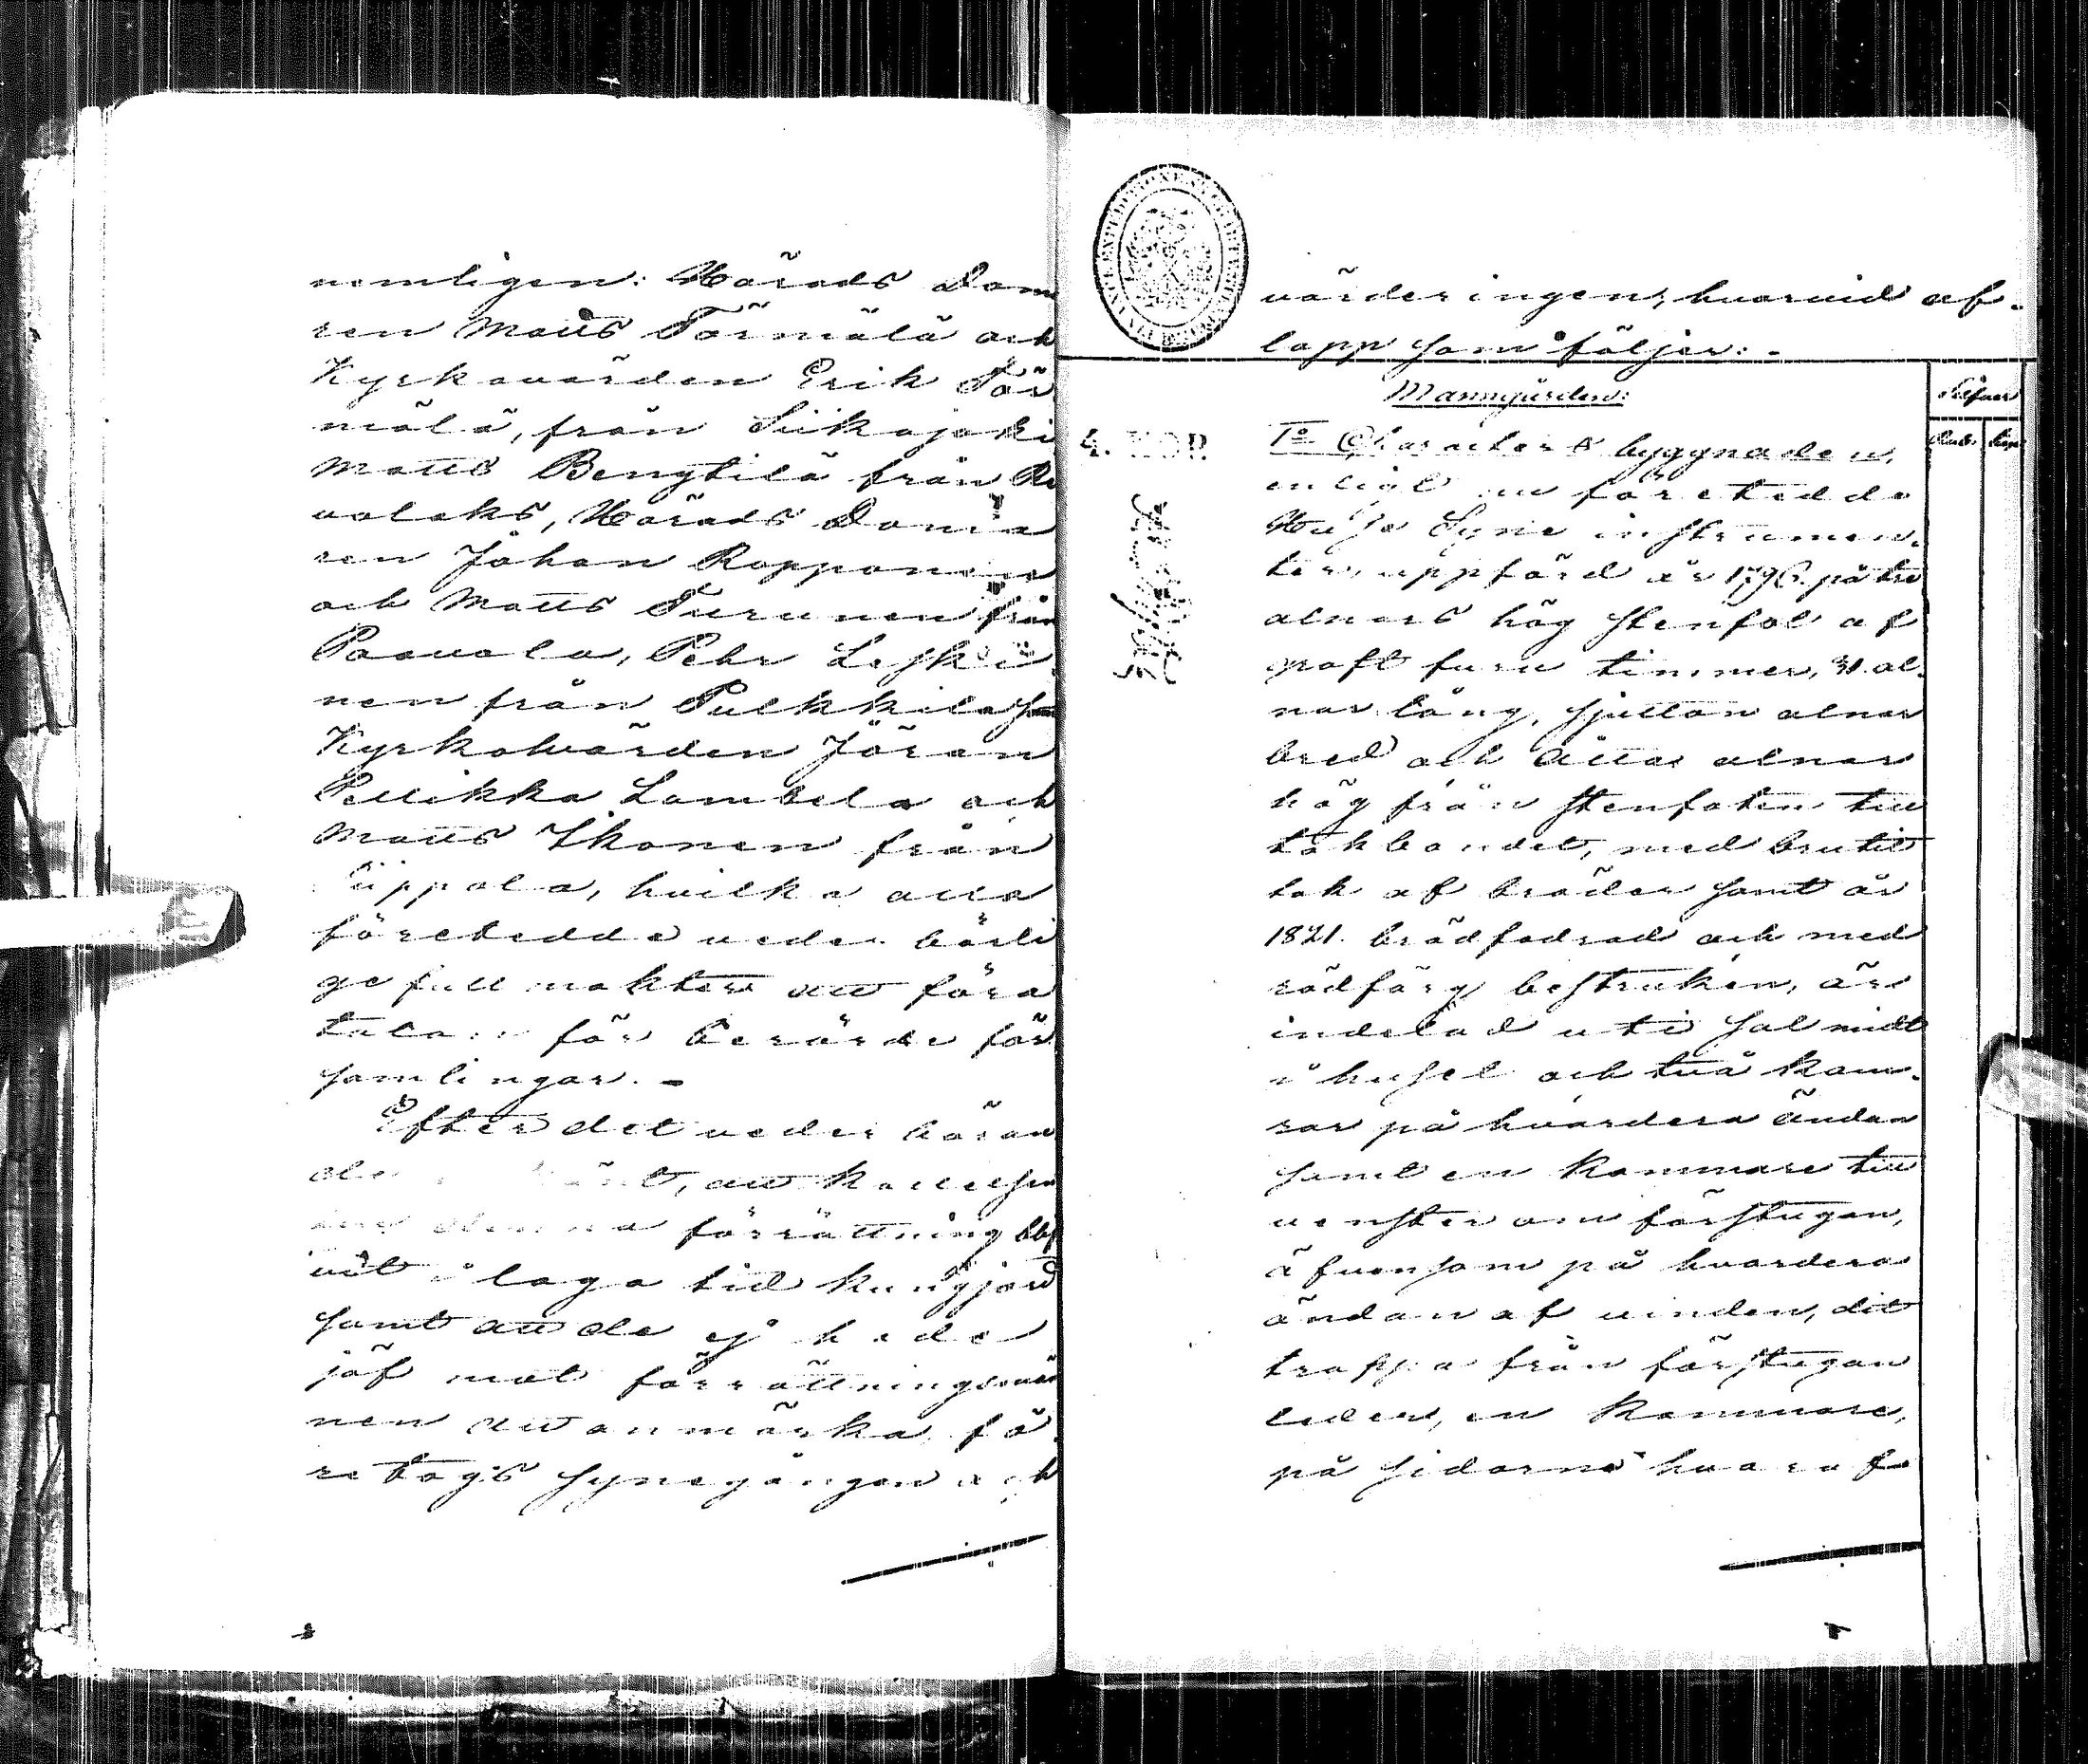 nemligen: Härads Dom
ren Matts Törmälä och
Kyrkovärden Erik Tör
mälä, från Siikajoki
Matts Bengtilä från Re
volaks, Härads Doma
ren Johan Ropponen
och Matts Turunen från
Paavola, Pehr Leski
nen från Pulkkila samt
Kyrkovärden Jöran
Pellikka Lambela och
Matts Ikonen från
Piippola, hvilka alla
företedde veder börli
ge fullmakter att föra
talan för berörde för
samlingar. -
Efter det veder böran
de, att kallelse
denna förrättning blif
vit i laga tid kungjord
samt att de ej hade
jäf mot förrättningsmän
nen att anmärka, fö
retogs synegången och
värderingen, hvarvid af-
lopp som följer: -
Manngården:
Silfver
Rub. kop.
4. KOP.
1o Charakters byggnaden,
enligt nu företedde
Husesyne instrumen-
ter, uppförd år 1796 på tre
alnars hög stenfot af
groft furu timmer, 31 al-
nar lång, sjutton alnar
bred och åtta alnar
hög från stenfoten till
takbandet, med brutit
tak af bräder samt år
1821. brädfodrad och med
rödfärg bestruken, är
indelad uti sal midt
i huset och två kam-
rar på hvardera ändan
samt en kammare till
venster om förstugan,
äfvensom på hvardera
ändan af vinden, dit
trappa från förstugan
leder, en kammare,
på sidorne hvaraf